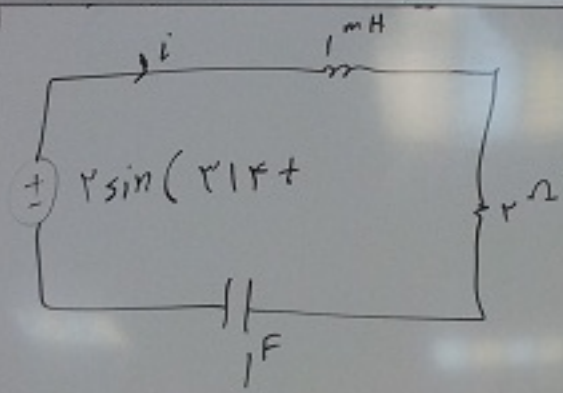 i
۱ mH
+
-
۲ sin ( ۳۱۴ t
۲ Ω
۱ F